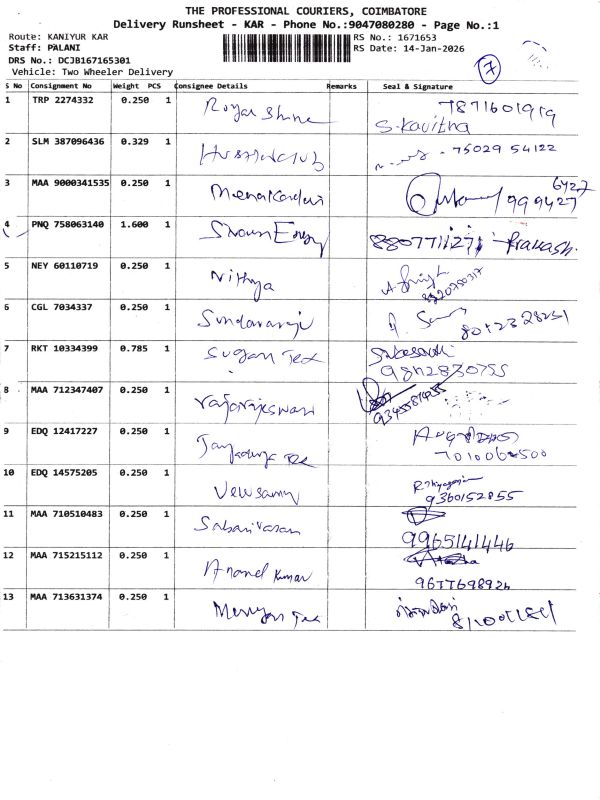 THE PROFESSIONAL COURIERS, COIMBATORE
Delivery Runsheet - KAR - Phone No.:9047080280 - Page No.:1
Route: KANIYUR KAR RS No.: 1671653
Staff: PALANI RS Date: 14-Jan-2026
DRS No.: DCJB167165301
Vehicle: Two Wheeler Delivery
7
S No Consignment No Weight PCS Consignee Details Remarks Seal & Signature
1 TRP 2274332 0.250 1 Royal Shine 7871601919
S. Kavitha
2 SLM 387096436 0.329 1 75029 54122
3 MAA 9000341535 0.250 1 6427
999427
4 PNQ 758063140 1.600 1 Shown Energy 8807711271 Prakash.
5 NEY 60110719 0.250 1 Nithya
6 CGL 7034337 0.250 1 Sundararaj
7 RKT 10334399 0.785 1 Sugan Tex
9842830755
8 MAA 712347407 0.250 1 Rajarajeswari
9 EDQ 12417227 0.250 1
10 EDQ 14575205 0.250 1 Velusamy
9360152855
11 MAA 710510483 0.250 1 Sabarivasan
9965141446
12 MAA 715215112 0.250 1 Anand Kumar
9677698924
13 MAA 713631374 0.250 1